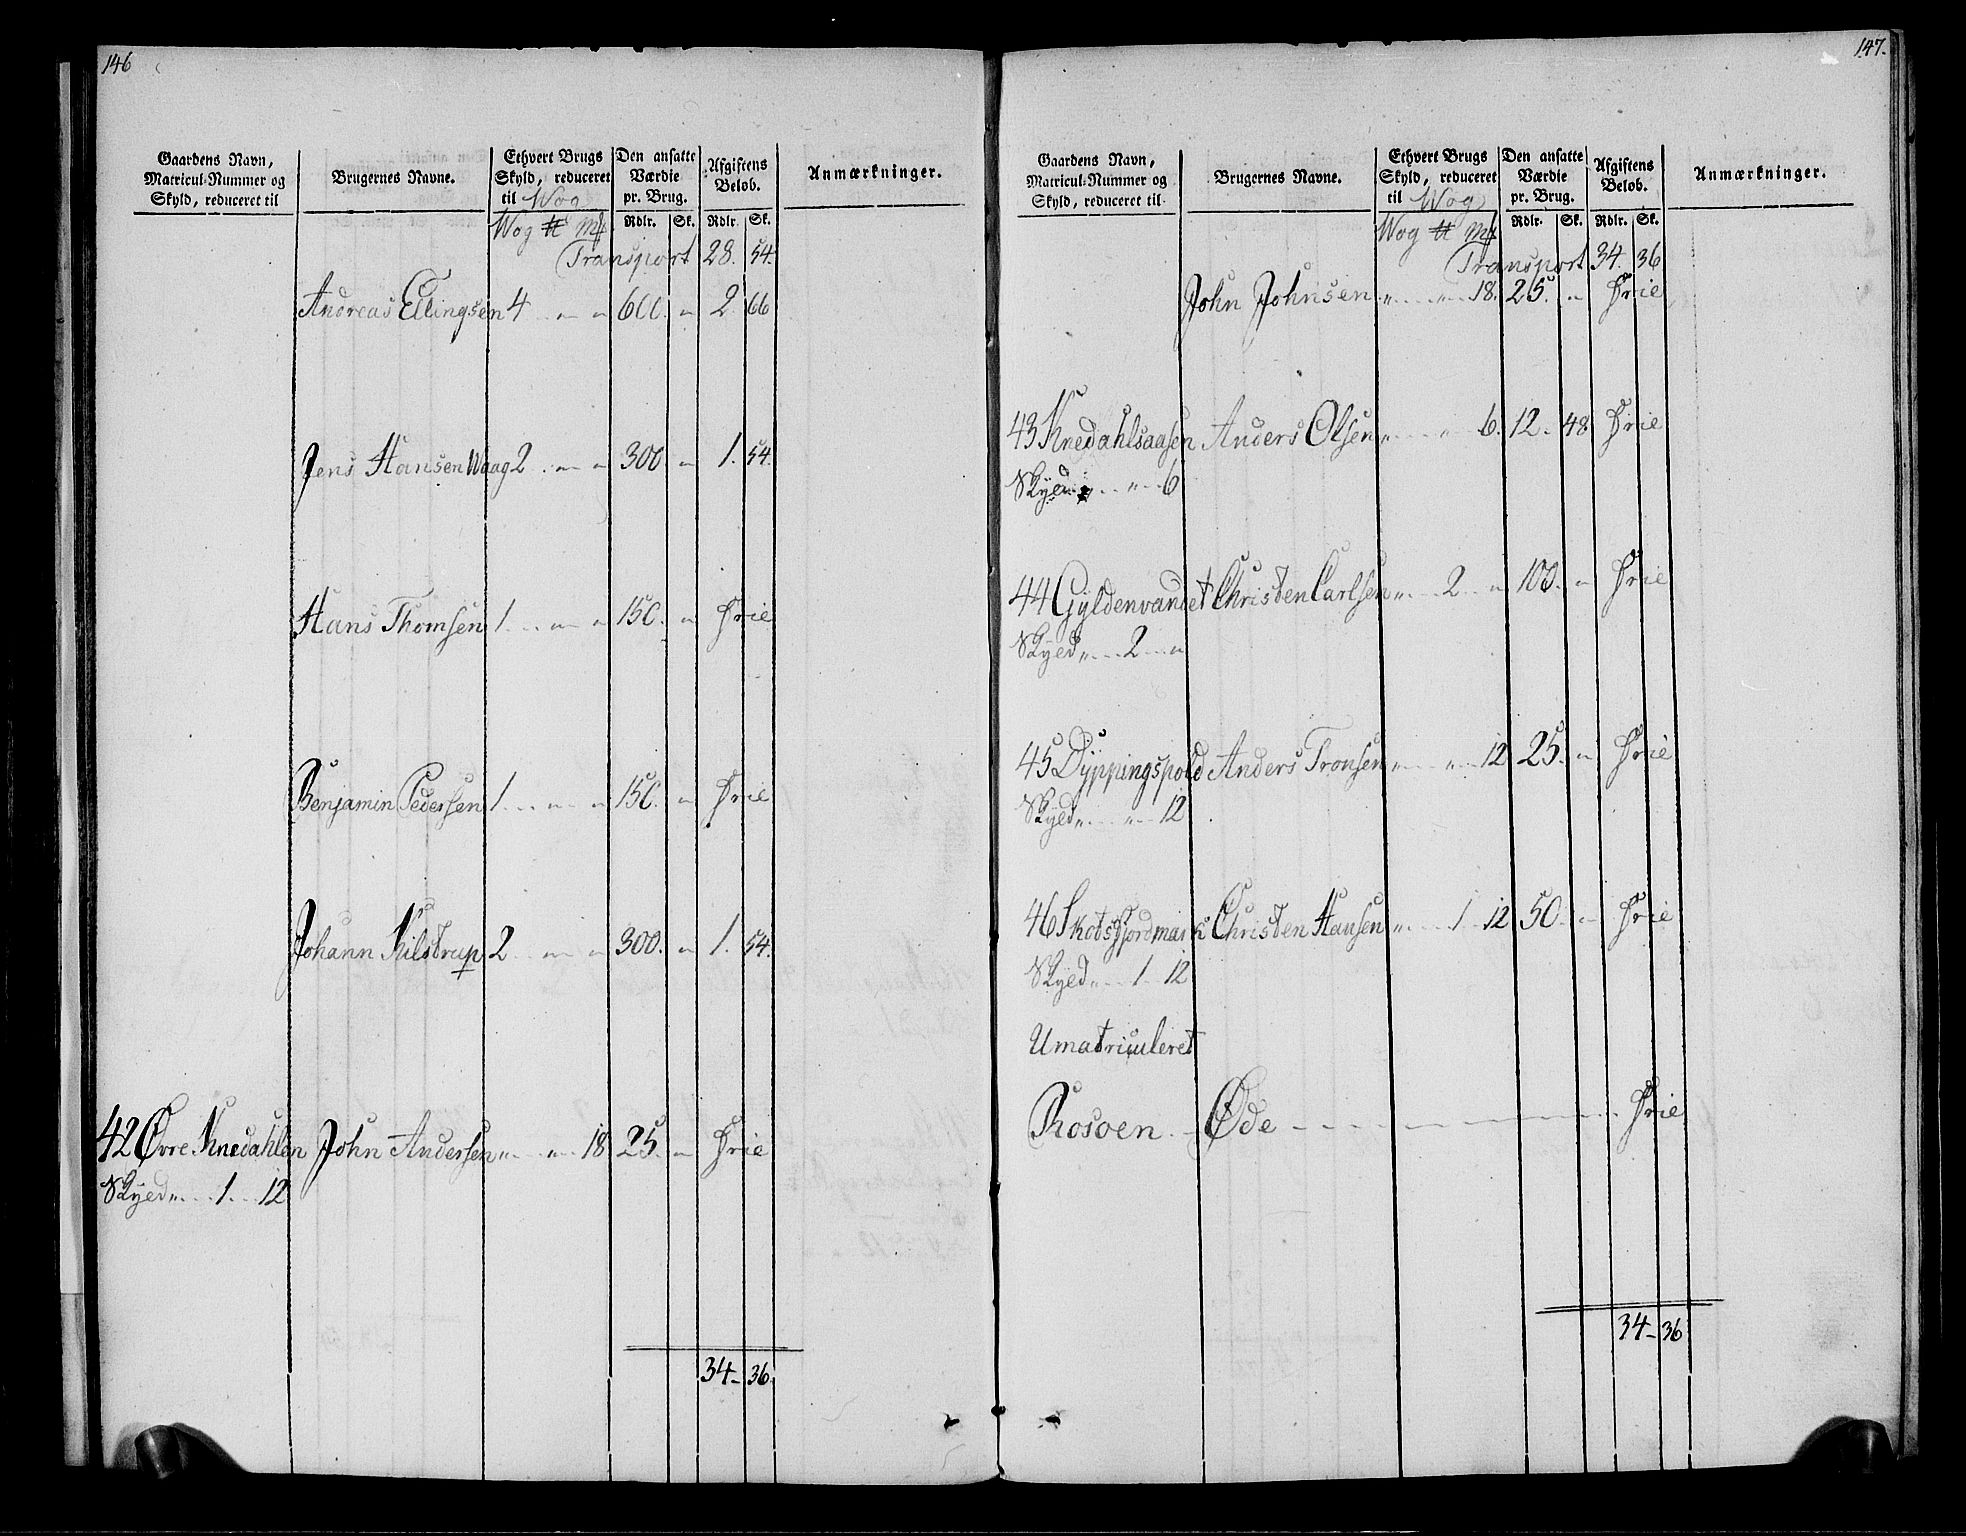 146
Gaardens Navn, Matricul-Nummer og Skyld, reduceret til
Brugernes Navne.
Ethvert Brugs Skyld, reduceret til Wog
Den ansatte Værdie pr. Brug.
Afgiftens Belob.
Anmærkninger.
Wog ℔ Mk Rdlr. Sk. Rdlr. Sk.
Transport 28. 54.
Andreas Ellingsen 4 „ „ 600. „ 2. 66
Jens Hansen Waag 2 „ „ 300 „ 1. 54.
Hans Thomsen 1 „ „ 150. „ Frie
Benjamin Pedersen 1 „ „ 150. „ Frie
Johann Kilstrup 2 „ „ 300. „ 1. 54.
42 Øvre Knedahlen John Andersen „ „ 18 25. „ Frie
Skyld „ 1. 12
34 - 36.
147.
Gaardens Navn, Matricul-Nummer og Skyld, reduceret til
Brugernes Navne.
Ethvert Brugs Skyld, reduceret til Wog
Den ansatte Værdie pr. Brug.
Afgiftens Belob.
Anmærkninger.
Wog ℔ Mk Rdlr. Sk. Rdlr. Sk.
Transport 34. 36
John Johnsen „ „ 18. 25. „ Frie
43 Knedahlsaasen Anders Olsen „ „ 6. 12. 48 Frie
Skyld „ „ 6
44 Gyldenvandet Christen Carlsen „ 2 „ 100. „ Frie
Skyld „ 2 „
45 Dyppingspold Anders Tronsen „ „ 12 25. „ Frie
Skyld „ „ 12
46 Skotsfjordmark Christen Hansen „ 1 12 50. „ Frie
Skyld „ 1 12
Umatriculeret
Rosøen - Øde - - - Frie
34 - 36